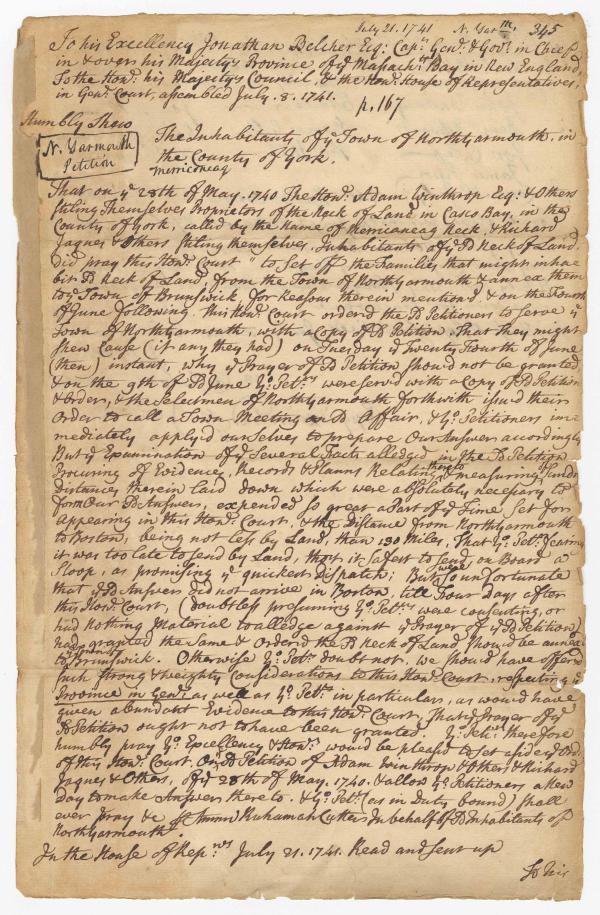 July 21. 1741 N. Yarm. 345
To his Excellency Jonathan Belcher Esq: Capt. Genl. & Govr. in Cheef,
in & over his Majesty's Province of ye Massachts. Bay in New England,
To the Honr. his Majesty's Council, & the Honr. House of Representatives,
in Genl. Court, assembled July. 8. 1741.
p. 167
Humbly Shew
N. Yarmouth
Petition
The Inhabitants of ye Town of North Yarmouth, in
the County of York.
merriconeag
That on ye 28th of May. 1740 The Honr. Adam Winthrop Esq: & Others
stiling Themselves Proprietors of the Neck of Land in Casco Bay, in the
County of York, called by the Name of Merriconeag Neck, & Richard
Jaques & Others stiling themselves, Inhabitants of ye sd Neck of Land.
Did pray this Honr. Court "to Set off the Families that might inha
bit sd Neck of Land from the Town of North Yarmouth & annex them
to ye Town of Brunswick for Reasons therein mention'd & on the Fourth
of June following, this Honr. Court ordered the sd Petitioners to serve ye
Town of North Yarmouth, with a Copy of sd Petition, That they might
shew Cause (if any they had) on Tuesday ye Twenty Fourth of June
(then) instant, why ye Prayer of sd Petition should not be granted
& on the 9th of sd June yo. Petrs. were serv'd with a Copy of sd Petition
& Order, & the Selectmen of North Yarmouth forthwith issu'd their
Order to call a Town Meeting on sd Affair, & yo. Petitioners im=
mediately apply'd ourselves to prepare Our Answers accordingly
But ye Examination of ye Several Facts alledged in the sd Petition
Procuring of Evidence, Records & Planns Relating thereto & measuring of sundry
Distances therein laid down which were absolutely necessary to
form Our sd Answers, expended so great a part of ye Time set for
Appearing in this Honr. Court, & the Distance from North Yarmouth
to Boston, being not less by Land, than 130 Miles, That yo. Petrs. (fearing
it was too late to send by Land, tho't it safest to send on Board a
Sloop, as promising ye quickest Dispatch; But were so unfortunate
that ye sd Answers did not arrive in Boston, till Four Days after
this Honr. Court, (doubtless presuming yo. Petrs. were consenting, or
had nothing material to alledge against ye Prayer of ye sd Petition)
had granted the Same & Order'd the sd Neck of Land should be annex'd
to Brunswick. Otherwise yo. Petrs. doubt not, we should have offer'd
such strong & weighty Considerations to this Honr. Court, respecting ye
Province in Genl. as well as yo. Petrs. in particular, as would have
given abundant Evidence to this Honr. Court, That ye Prayer of ye
sd Petition ought not to have been granted. Yo. Petrs. therefore
humbly pray yo. Excellency & Honrs. would be pleas'd to set aside ye Ordr.
of this Honr. Court. On ye Petition of Adam Winthrop & Others & Richard
Jaques & Others, of ye 28th of May. 1740. & allow yo. Petitioners a new
Day to make Answer thereto. & yo. Petrs. (as in Duty bound) shall
ever Pray &c Ammi Ruhamah Cutter In behalf of sd Inhabitants of
North Yarmouth.
In the House of Reprves. July 21. 1741. Read and sent up
To his